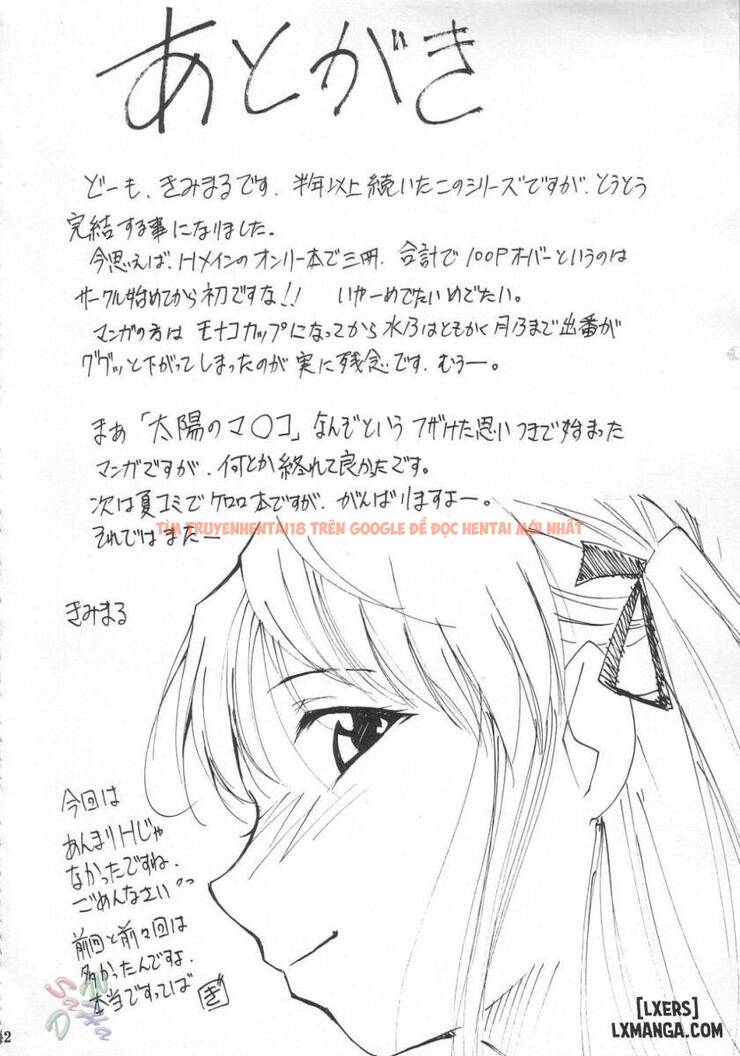 あとがき
どーも、きみまるです。半年以上続いたこのシリーズですが、とうとう
完結する事になりました。
今思えば、Hメインのオンリー本で三冊、合計で100Pオーバーというのは
サークル始めてから初ですな!! いやーめでたいめでたい。
マンガの方はモナコカップになってから水乃はともかく月乃まで出番が
ググッと下がってしまったのが実に残念です。むぅー。
まぁ「太陽のマ〇コ」なんぞというフザけた思いつきで始まった
マンガですが、何とか終れて良かったです。
次は夏コミでケロロ本ですが、がんばりますよー。
それではまたー
TÌM TRUYENHENTAI18 TRÊN GOOGLE ĐỂ ĐỌC HENTAI MỚI NHẤT
きみまる
今回は
あんまりHじゃ
なかったですね、
ごめんなさい
前回と前々回は
多かったんですよ、
本当ですってば
き
SaHa
42
[LXERS]
LXMANGA.COM